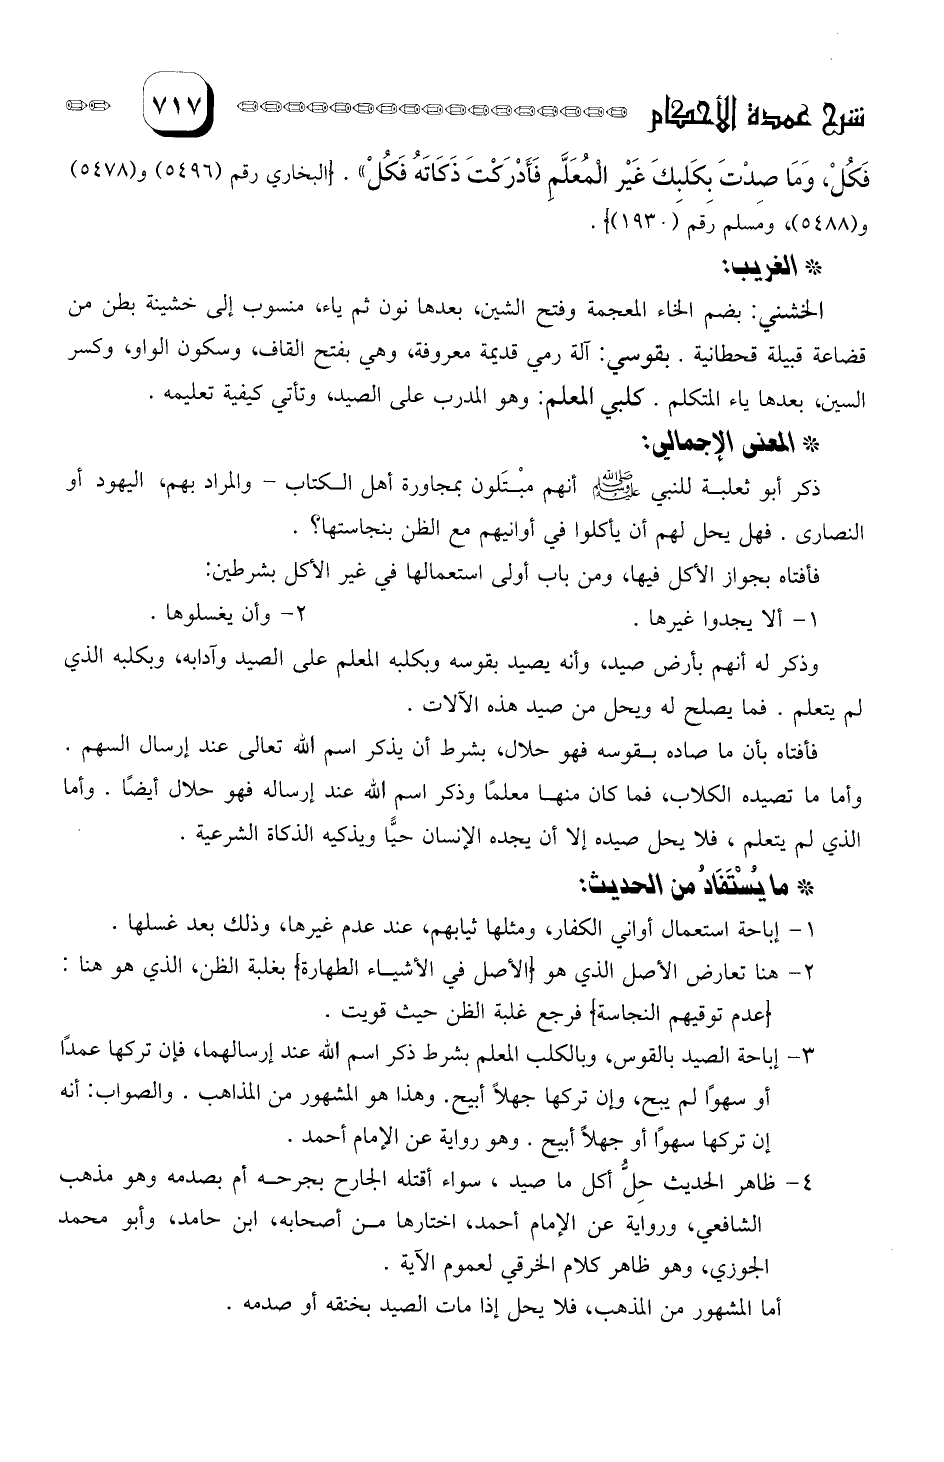 شرح عمدة الأحكام ٧١٧
فَكُلْ، وَمَا صِدْتَ بِكَلبِكَ غَيْرَ الْمُعَلَّمِ فَأَدْرَكْتَ ذَكَاتَهُ فَكُلْ» . {البخاري رقم (٥٤٩٦) و(٥٤٧٨)
و(٥٤٨٨)، ومسلم رقم (١٩٣٠)} .
* الغريب:
الخشني: بضم الخاء المعجمة وفتح الشين، بعدها نون ثم ياء، منسوب إلى خشينة بطن من
قضاعة قبيلة قحطانية . بقوسي: آلة رمي قديمة معروفة، وهي بفتح القاف، وسكون الواو، وكسر
السين، بعدها ياء المتكلم . كلبي المعلم: وهو المدرب على الصيد، وتأتي كيفية تعليمه .
* المعنى الإجمالي:
ذكر أبو ثعلبة للنبي ﷺ أنهم مبْتَلون بمجاورة أهل الكتاب – والمراد بهم، اليهود أو
النصارى . فهل يحل لهم أن يأكلوا في أوانيهم مع الظن بنجاستها؟ .
فأفتاه بجواز الأكل فيها، ومن باب أولى استعمالها في غير الأكل بشرطين:
١– ألا يجدوا غيرها . ٢– وأن يغسلوها .
وذكر له أنهم بأرض صيد، وأنه يصيد بقوسه وبكلبه المعلم على الصيد وآدابه، وبكلبه الذي
لم يتعلم . فما يصلح له ويحل من صيد هذه الآلات .
فأفتاه بأن ما صاده بقوسه فهو حلال، بشرط أن يذكر اسم الله تعالى عند إرسال السهم .
وأما ما تصيده الكلاب، فما كان منها معلمًا وذكر اسم الله عند إرساله فهو حلال أيضًا . وأما
الذي لم يتعلم ، فلا يحل صيده إلا أن يجده الإنسان حيًّا ويذكيه الذكاة الشرعية .
* ما يُسْتَفَادُ من الحديث:
١– إباحة استعمال أواني الكفار، ومثلها ثيابهم، عند عدم غيرها، وذلك بعد غسلها .
٢– هنا تعارض الأصل الذي هو {الأصل في الأشياء الطهارة} بغلبة الظن، الذي هو هنا :
{عدم توقيهم النجاسة} فرجع غلبة الظن حيث قويت .
٣– إباحة الصيد بالقوس، وبالكلب المعلم بشرط ذكر اسم الله عند إرسالهما، فإن تركها عمدًا
أو سهوًا لم يبح، وإن تركها جهلاً أبيح. وهذا هو المشهور من المذاهب . والصواب: أنه
إن تركها سهوًا أو جهلاً أبيح . وهو رواية عن الإمام أحمد .
٤– ظاهر الحديث حِلُّ أكل ما صيد ، سواء أقتله الجارح بجرحه أم بصدمه وهو مذهب
الشافعي، ورواية عن الإمام أحمد، اختارها من أصحابه، ابن حامد، وأبو محمد
الجوزي، وهو ظاهر كلام الخرقي لعموم الآية .
أما المشهور من المذهب، فلا يحل إذا مات الصيد بخنقه أو صدمه .